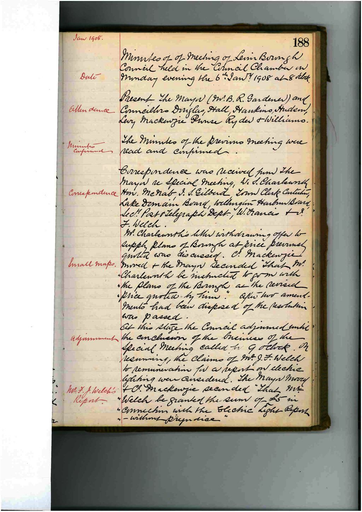 Jan 1908.
188
Minutes of of Meeting of Levin Borough
Council held in the Council Chamber on
Date
Monday evening the 6th Jany 1908 at 8 oclock
Attendance
Present The Mayor (Mr B. R. Gardener) and
Councillors Douglas, Hall, Hankins, Hudson,
Levy Mackenzie Prouse Ryder & Williams.
Minutes
Confirmed
The Minutes of the previous meeting were
read and confirmed.
Correspondence was received from The
Mayor re Special Meeting,
Correspondence
Lake Domain Board, Wellington Harbour Board
Secy Post & Telegraph Dept, W. Francis &
F. Welch.
Mr Charlesworth letter withdrawing offer to
supply plans of Borough at price previously
quoted was discussed. Cr Mackenzie
moved & the Mayor seconded "That Mr
Charlesworth be instructed to go on with
the plans of the Borough at the revised
price quoted by him". After two amend-
ments had been disposed of the resolution
was passed.
At this stage the Council adjourned until
Adjournment
the conclusion of the business of the
Special Meeting called for 9 oclock. On
resuming, the claims of Mr J. F. Welch
to remuneration for a report on electric
lighting were considered. The Mayor moved
Mr F. J. Welch's
Report
& Cr Mackenzie seconded "That Mr
Welch be granted the sum of £5 in
connection with the Electric Light Report
"without prejudice"